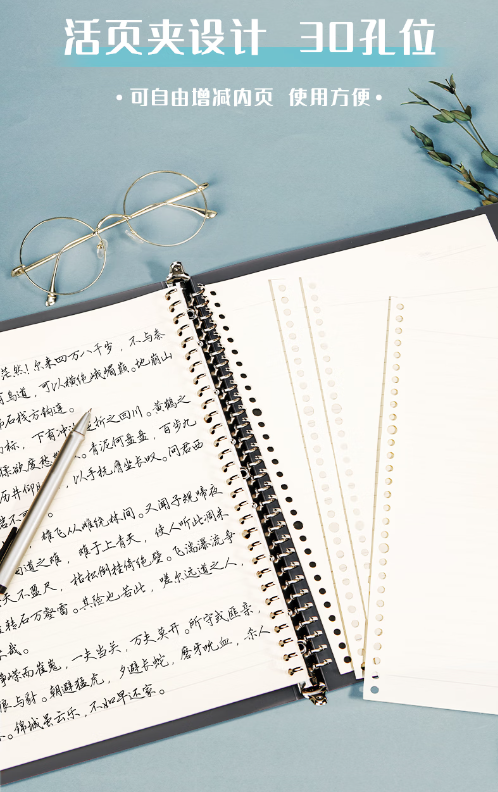 活页夹设计 30孔位
·可自由增减内页 使用方便·
茫然!尔来四万八千岁,不与秦
有鸟道,可以横绝峨嵋巅。地崩山
石栈方钩连。
标,下有冲 折之回川。黄鹤之
猱欲度愁 。青泥何盘盘,百步九
历井仰 ,以手抚膺坐长叹。问君西
不
雄飞从雌绕林间。又闻子规啼夜
道之难,难于上青天,使人听此凋朱
天不盈尺,枯松倒挂倚绝壁。飞湍瀑流争
转石万壑雷。其险也若此,嗟尔远道之人,
哉。
峥嵘而崔嵬,一夫当关,万夫莫开。所守或匪亲,
狼与豺。朝避猛虎,夕避长蛇,磨牙吮血,杀人
。锦城虽云乐,不如早还家。